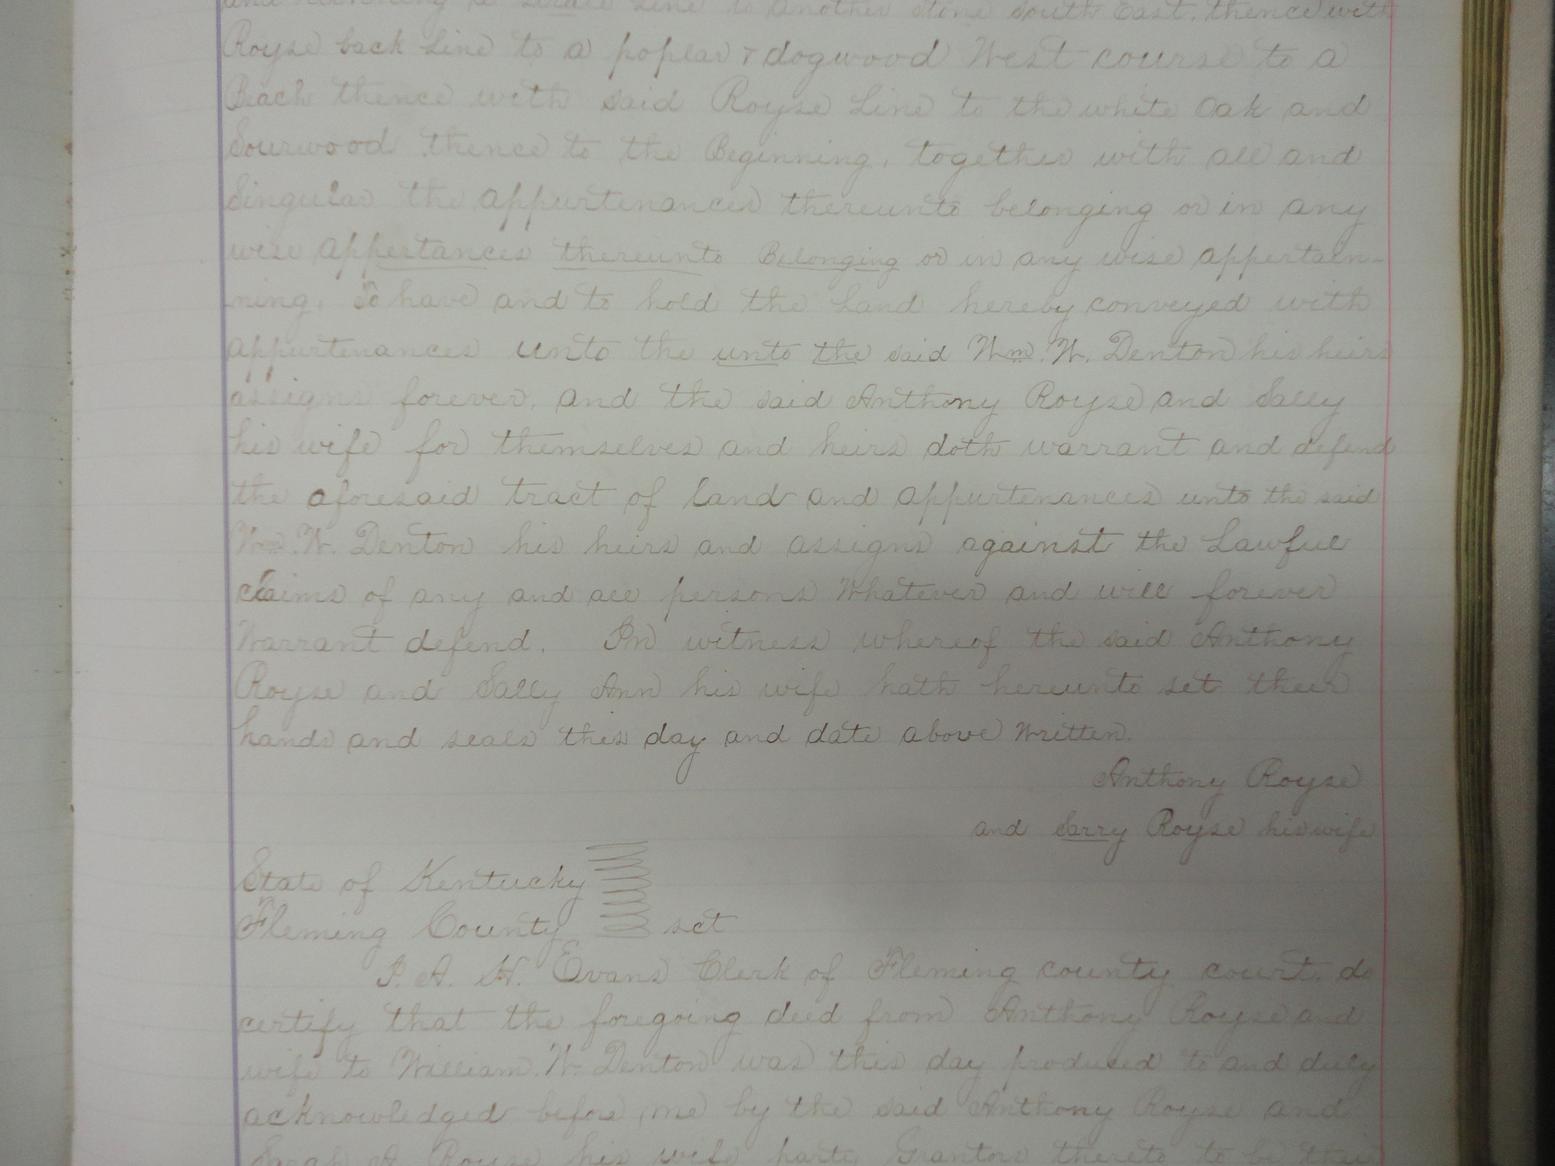 and running a straite Line to another stone South East, thence with
Royse back Line to a poplar & dogwood West course to a
Beach thence with said Royse Line to the white Oak and
Sourwood thence to the Beginning, together with all and
Singular the appurtenances thereunto belonging or in any
wise appertances thereunto Belonging or in any wise appertain-
ning, To have and to hold the Land hereby conveyed with
appurtenances unto the unto the said Wm. W. Denton his heirs
assigns forever, and the said Anthony Royse and Sally
his wife for themselves and heirs doth warrant and defend
the aforesaid tract of land and appurtenances unto the said
Wm. W. Denton his heirs and assigns against the Lawful
claims of any and all persons Whatever and will forever
Warrant defend. In witness whereof the said Anthony
Royse and Sally Ann his wife hath hereunto set their
hands and seals this day and date above Written.
Anthony Royse
and Sarry Royse his wife
State of Kentucky
Fleming County sct
I. A. H. Evans Clerk of Fleming county court, do
certify that the foregoing deed from Anthony Royse and
wife to William W. Denton was this day produced to and duly
acknowledged before me by the said Anthony Royse and
Sarah A. Royse his wife party Grantors thereto to be their